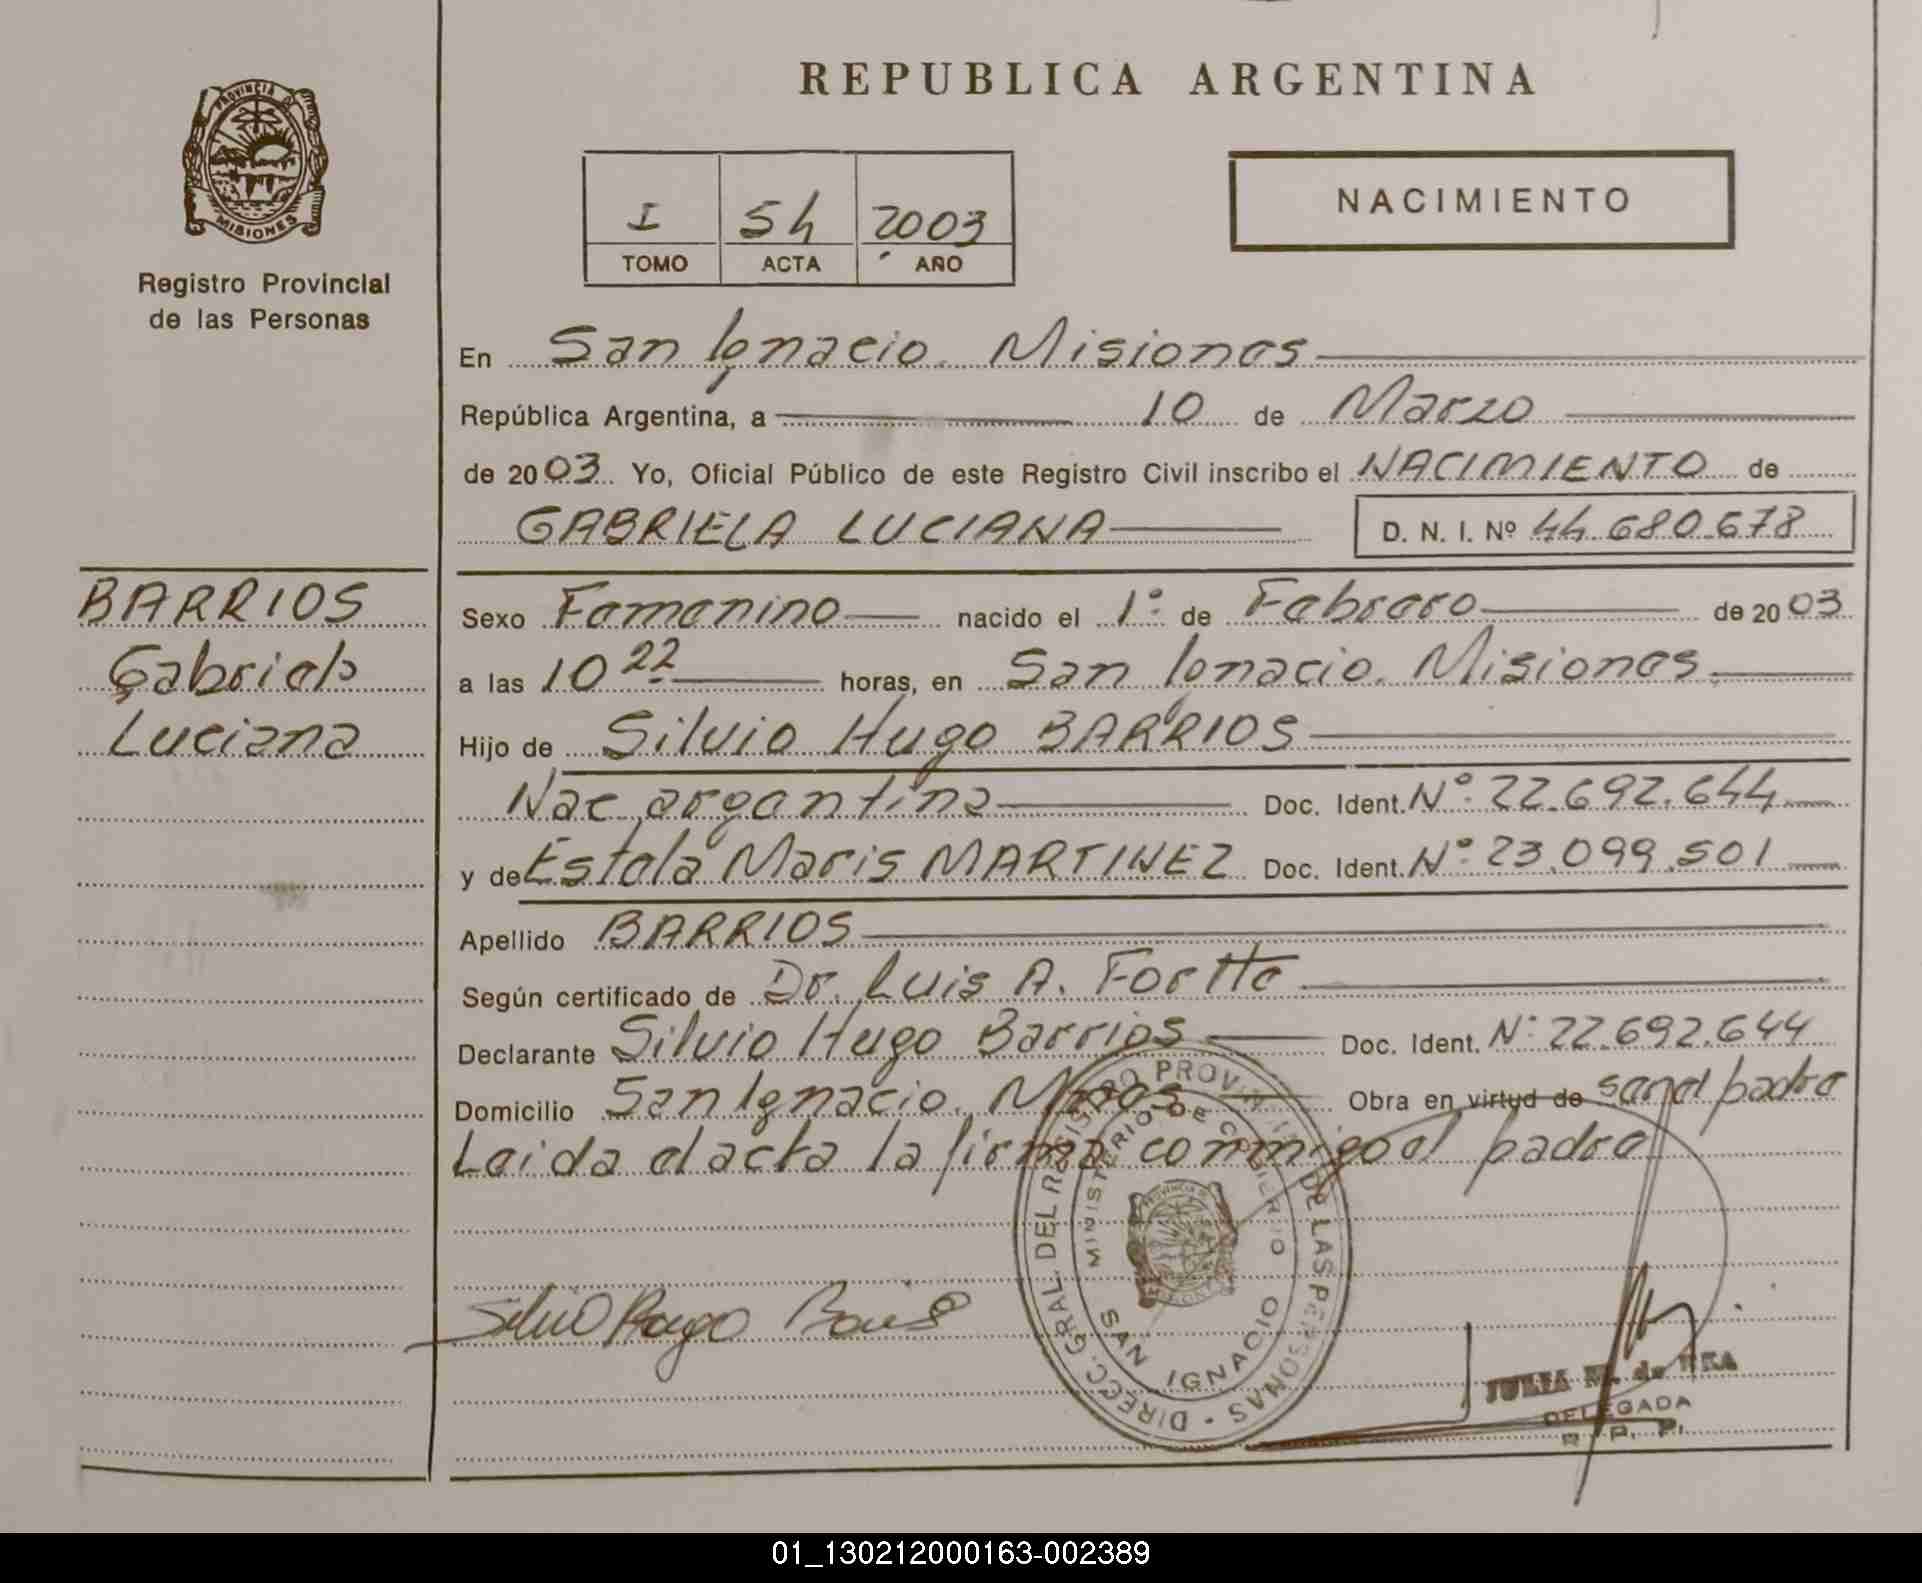 REPUBLICA ARGENTINA
PROVINCIA DE
MISIONES
Registro Provincial
de las Personas
I 54 2003
TOMO ACTA AÑO
NACIMIENTO
En San Ignacio. Misiones
República Argentina, a 10 de Marzo
de 2003. Yo, Oficial Público de este Registro Civil inscribo el NACIMIENTO de
GABRIELA LUCIANA D. N. I. Nº 44.680.678
BARRIOS
Gabriela
Luciana
Sexo Femenino nacido el 1º de Febrero de 2003
a las 10 22 horas, en San Ignacio. Misiones
Hijo de Silvio Hugo BARRIOS
Nac. argentina Doc. Ident. Nº 22.692.644
y de Estela Maris MARTINEZ Doc. Ident. Nº 23.099.501
Apellido BARRIOS
Según certificado de Dr. Luis A.
Declarante Silvio Hugo Barrios Doc. Ident. Nº 22.692.644
Domicilio San Ignacio. Mnes Obra en virtud de ser el padre
Leida el acta la firma conmigo el padre
DIRECC. GRAL. DEL REGISTRO PROVINCIAL DE LAS PERSONAS
MINISTERIO DE GOBIERNO
SAN IGNACIO
Silvio Hugo Barrios
JULIA M. de
DELEGADA
R. P. P.
01_130212000163-002389